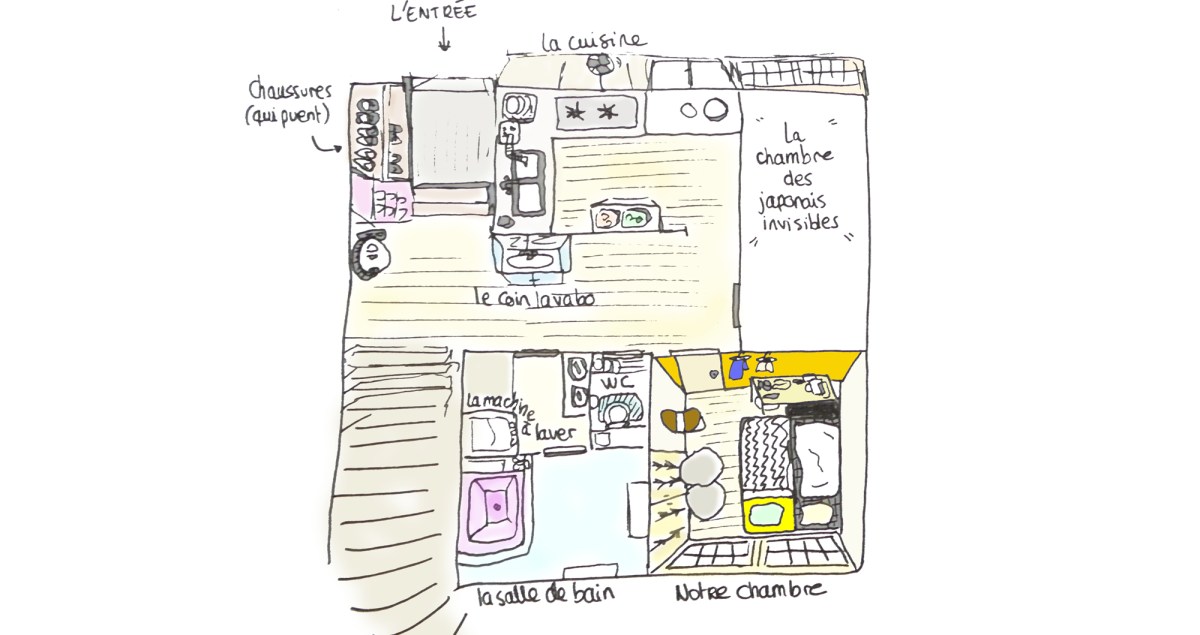 L'ENTRÉE
la cuisine
Chaussures
(qui puent)
"La
chambre
des
japonais
invisibles"
le coin lavabo
WC
La machine
à laver
la salle de bain
Notre chambre